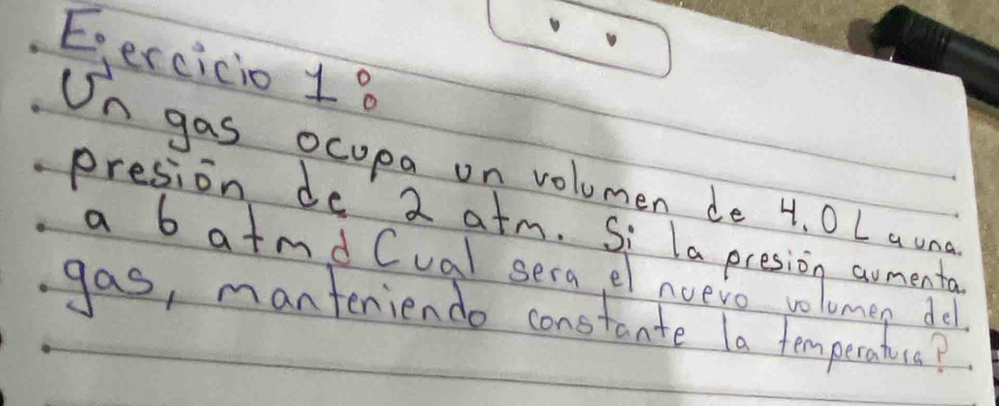 Ejercicio 1:
Un gas ocupa un volumen de 4.0 L a una
presión de 2 atm. Si la presión aumenta
a 6 atm ¿Cual sera el nuevo volumen del
gas, manteniendo constante la temperatura?